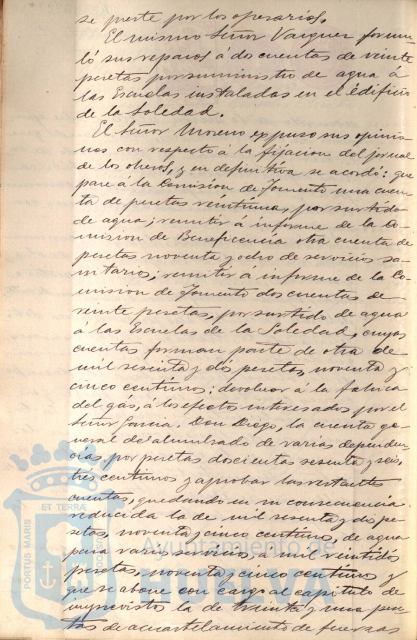 se preste por los operarios.
El mismo Señor Vazquez formu
ló sus reparos á dos cuentas de veinte
pesetas por suministro de agua á
las Escuelas instaladas en el edificio
de la Soledad.
El Señor Moreno expuso sus opinio
nes con respecto á la fijacion del jornal
de los obreros, y en definitiva se acordó: que
pase á la Comision de Fomento una cuen
ta de pesetas veintiuna, por surtido
de agua; remitir á informe de la Co
mision de Beneficencia otra cuenta de
pesetas noventa y ocho de servicios sa
nitarios; remitir á informe de la Co
mision de Fomento dos cuentas de
veinte pesetas, por surtido de agua
á las Escuelas de la Soledad, cuyas
cuentas forman parte de otra de
mil sesenta y dos pesetas, noventa y
cinco centimos; devolver á la fabrica
del gas, á los efectos interesados por el
Señor Garcia, Don Diego, la cuenta ge
neral del alumbrado de varias dependen
cias, por pesetas doscientas sesenta y seis,
tres centimos y aprobar las restantes
cuentas, quedando en su consecuencia
reducida la de mil sesenta y dos pe
setas, noventa y cinco centimos, de agua
para varios servicios, á mil veintidós
pesetas, noventa y cinco centimos y
que se abone con cargo al capitulo de
imprevistos la de treinta y una pese
tas de acuartelamiento de fuerzas
PORTUS MARIS
ET TERRÆ
Ayuntamiento de
HUELVA